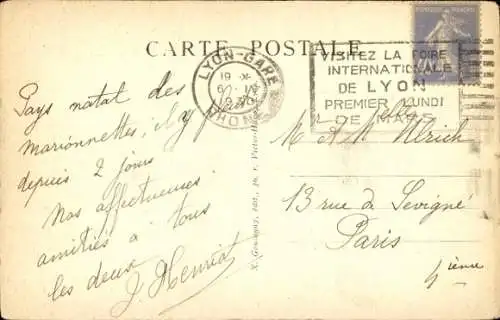 CARTE POSTALE
LYON-GARE
RHONE
VISITEZ LA FOIRE
INTERNATIONALE
DE LYON
PREMIER LUNDI
DE MARS
Pays natal des
marionnettes, il y
depuis 2 jours
Nos affectueuses
amitiés à tous
les deux
J. Henriot
Ulrich
13 rue de Sévigné
Paris
4ième